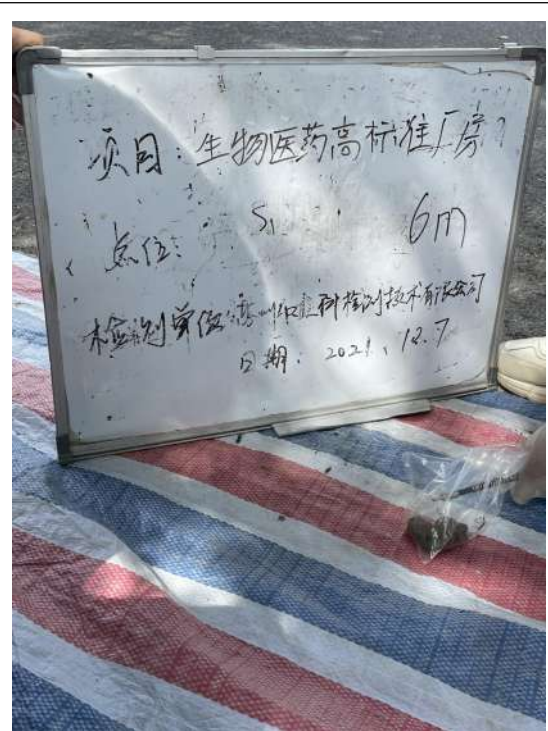 项目: 生物医药高标准厂房
点位: S1 6m
检测单位: 科检测技术有限公司
日期: 2021.12.7